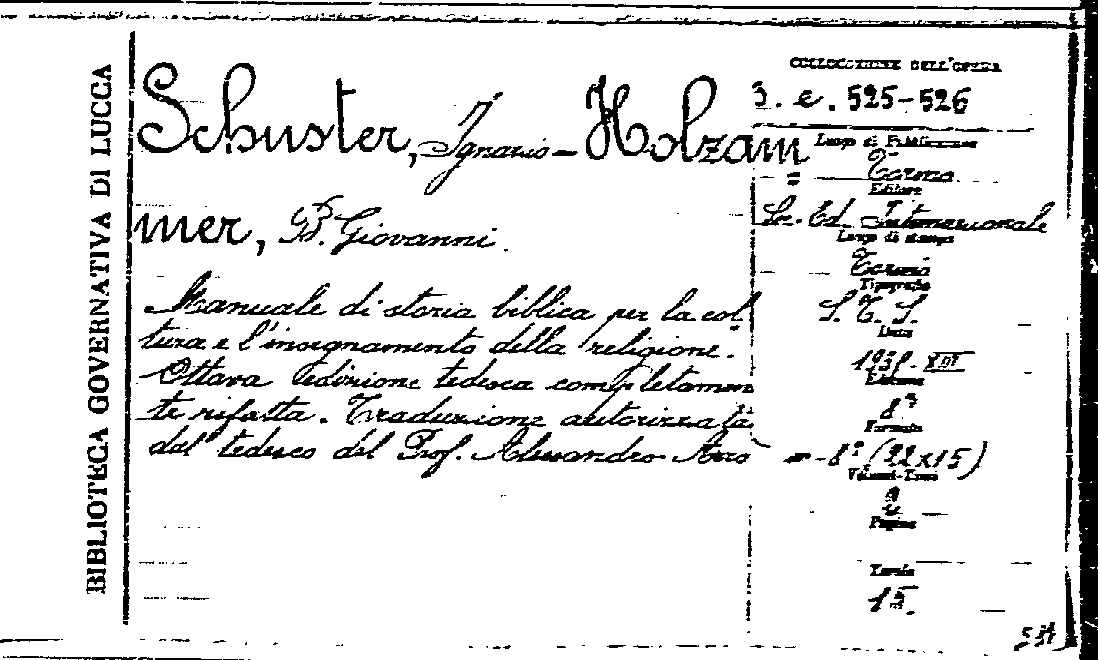 BIBLIOTECA GOVERNATIVA DI LUCCA
Schuster, Ignazio - Holzam=
mer, D. Giovanni.
Manuale di storia biblica per la col-
tura e l'insegnamento della religione.
Ottava edizione tedesca completamen
te rifatta. Traduzione autorizzata
dal tedesco del Prof. Alessandro Arro
COLLOCAZIONE DELL'OPERA
3. e. 525-526
Luogo di Pubblicazione
Torino
Editore
Soc. Ed. Internazionale
Luogo di stampa
Torino
Tipografia
S. T. S.
Data
Edizione
8ª
Formato
= - 8° (22x15)
Volumi-Tomi
2
Pagine
Tavole
15.